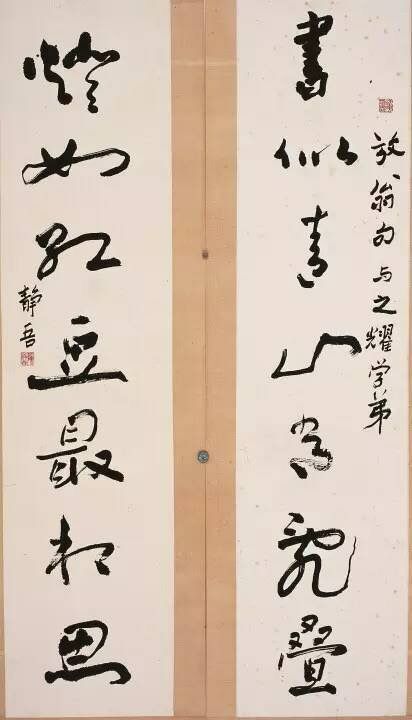 書似青山常亂疊
放翁句与之耀学弟
燈如紅豆最相思
靜吾